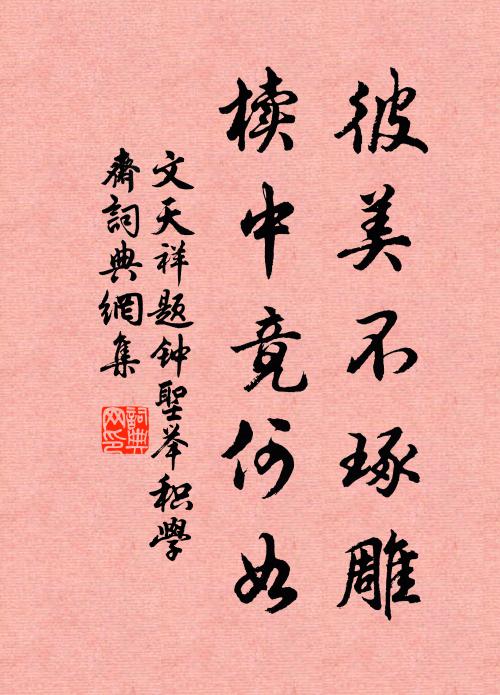 彼美不琢雕
椟中竟何如
文天祥题钟聖举积學
齋詞典網集
詞典网印